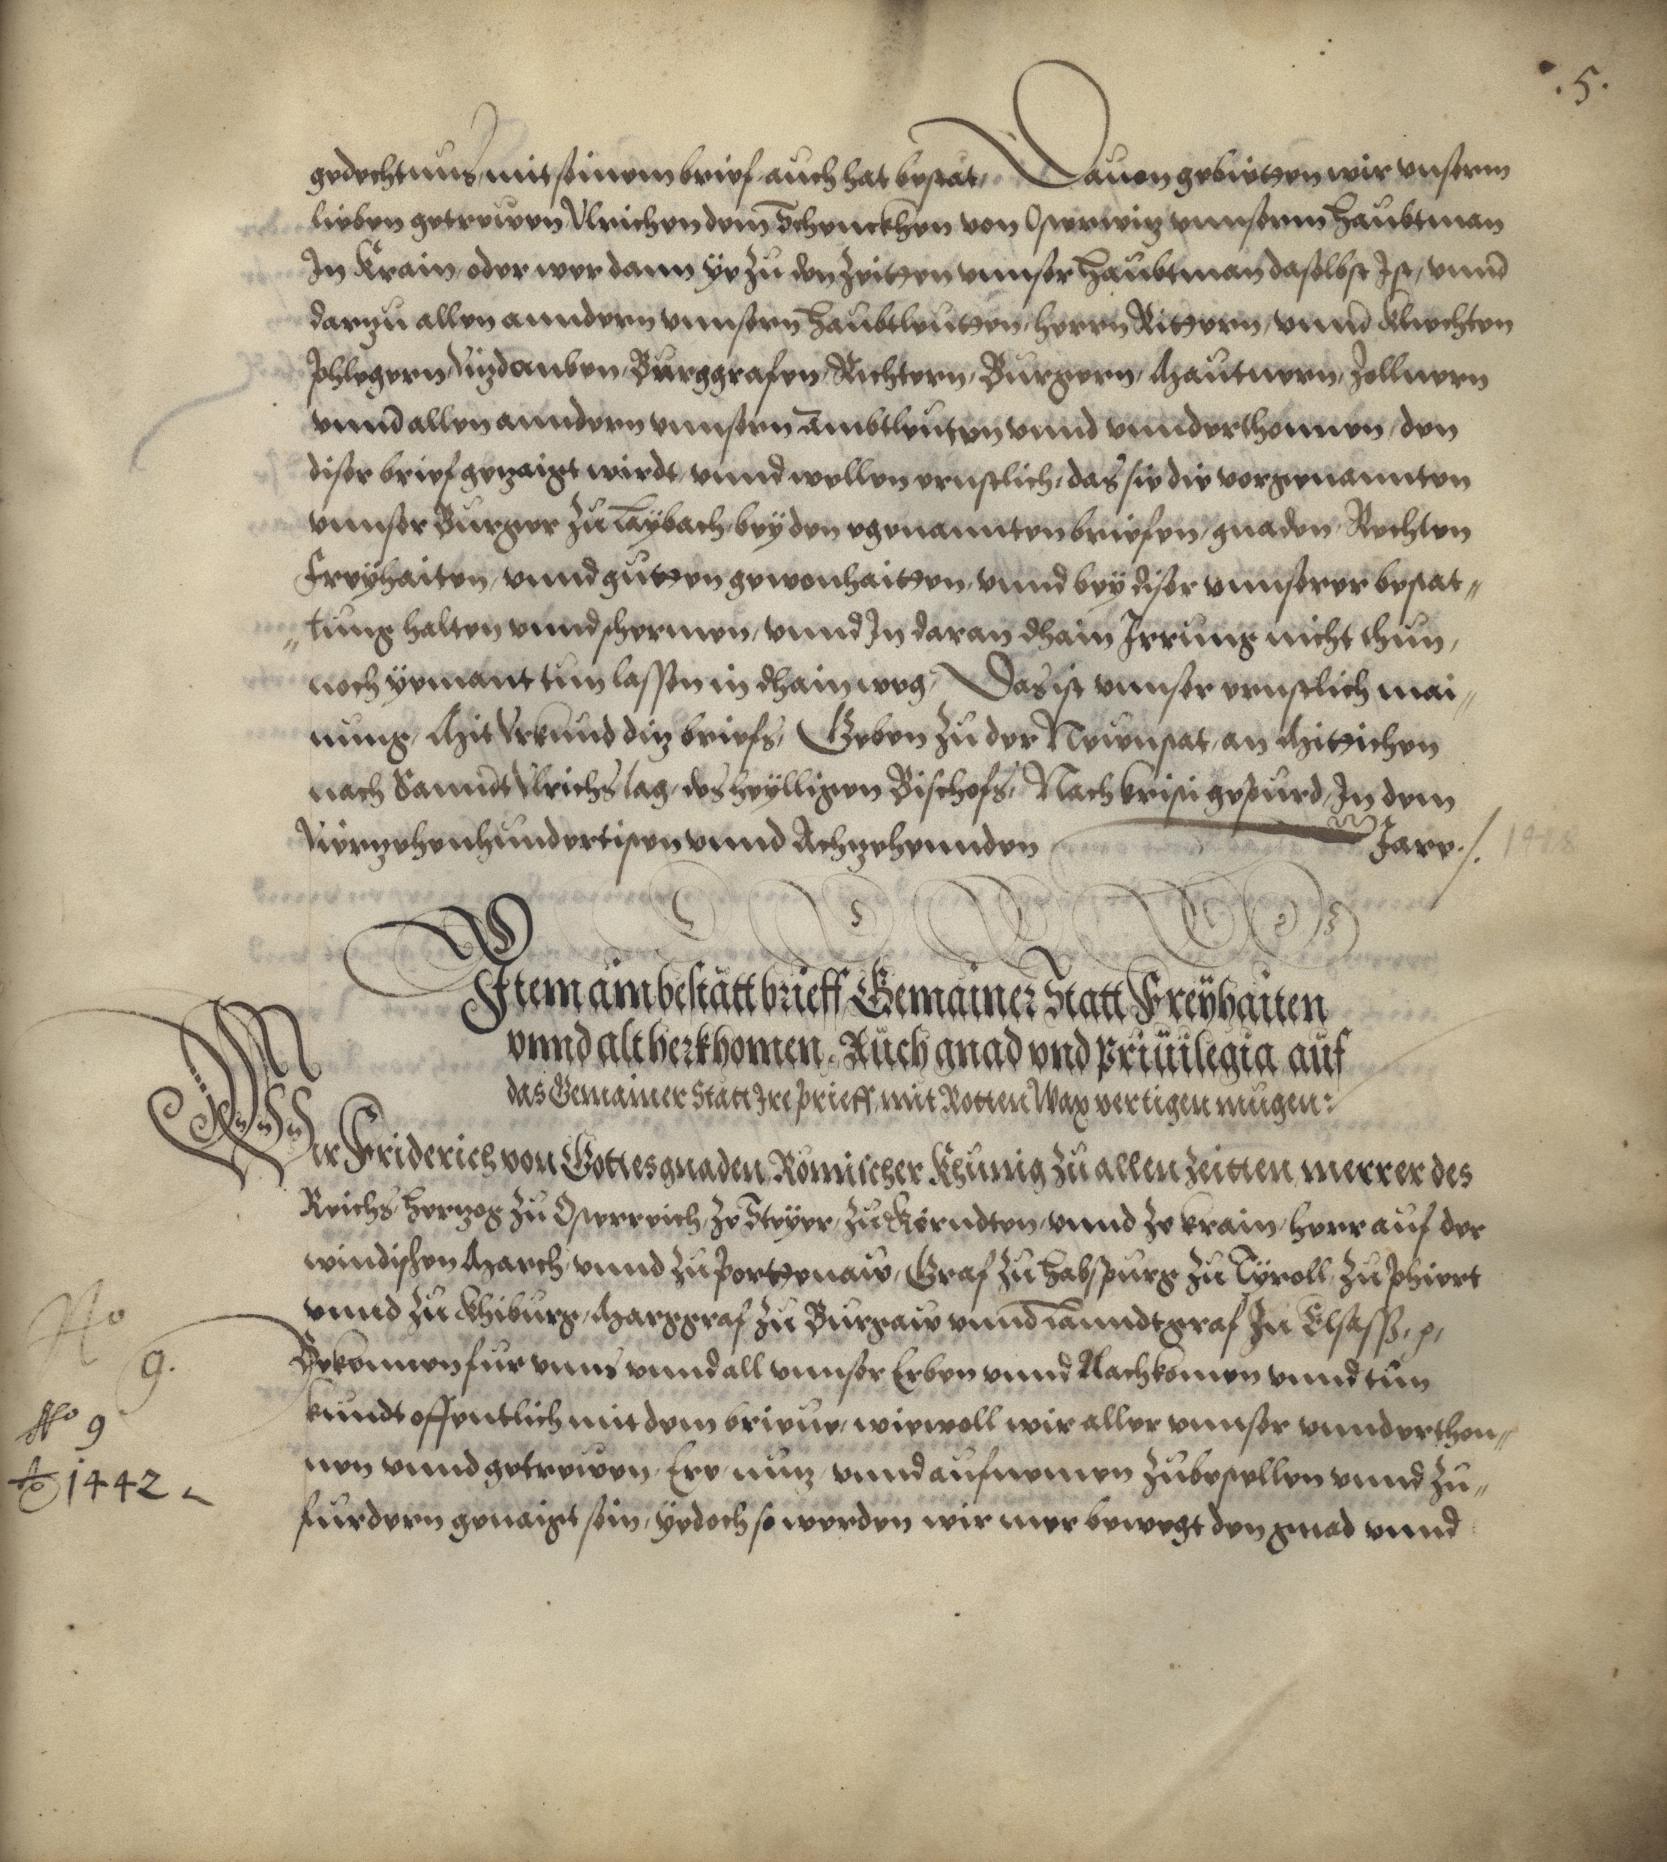 .5.
gedechtnus, mit seinem brief auch hat bestat, Dauon gebietten wir vnserm
lieben getrewen Vlrichen dem Schenckhen von Osterwitz vnnserm Haubtman
In Krain, oder wer dann ÿe zu den Zeitten vnnser Haubtman daselbst Ist, vnnd
darzu allen anndern vnnsern Haubtleutten, herrn Rittern, vnnd Knechten
Phlegern, Vizdomben, Burggrafen, Richtern, Burgern, Mautnern, Zollnern
vnnd allen anndern vnnsern Ambtleuten vnnd vnnderthonnen, den
diser brief gezaigt wirdt, vnnd wellen ernstlich, das sie die vorgenannten
vnnser Burger zu Laÿbach, beÿ den egenannten briefen, gnaden, Rechten
Freÿhaiten, vnnd gutten gewonhaitten, vnnd beÿ diser vnnserer bestat„
„tung halten vnnd schermen, vnnd In daran dhain Irrung nicht thun,
noch ÿemant tun lassen in dhain weg, Das ist vnnser ernstlich mai„
nung, Mit Vrkund ditz briefs, Geben zu der Neuenstat, an Mittichen
nach Sannd Vlrichs tag, des heÿlligen Bischofs, Nach kristi gepurd, In dem
Vierzehenhundertisten vnnd Achzehennden Jare ./. 1418
Item ain bestätt brieff Gemainer Statt Freÿhaiten
vnnd alt herkhomen, Auch gnad vnd Priuilegia auf
das Gemainer Statt Ire prieff, mit Rotten Wax vertigen mugen:
Wir Friderich von Gottes gnaden, Römischer Khunig zu allen Zeitten, merrer des
Reichs, Hertzog zu Osterreich, ze Steÿer, zu Kerndten, vnnd ze Krain, herr auf der
windischen March, vnnd zu Porttenaw, Graf zu Habspurg zu Tÿroll, zu Phiert
vnnd zu Khiburg, Marggraf zu Burgaw vnnd Lanndtgraf In Elsass, p,
No
9.
Bekennen fur vnns vnnd all vnnser Erben vnnd Nachkomen vnnd tun
No 9
kundt offentlich mit dem brieue, wiewoll wir aller vnnser vnnderthon„
Ao 1442
nen vnnd getrewen, Ere, nutz, vnnd aufnemen zubestellen vnnd zu„
furdern genaigt sein, ÿedoch so werden wir mer bewegt den gnad vnnd